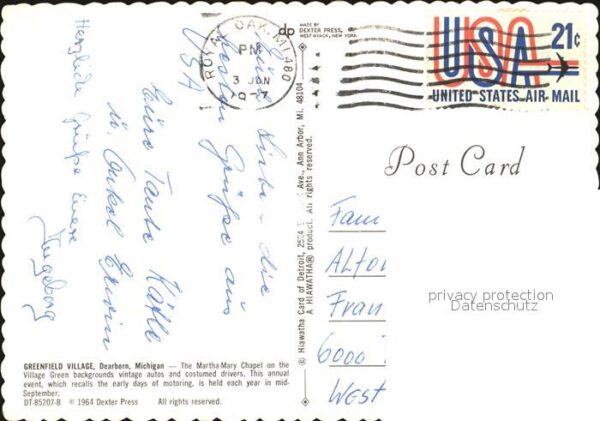 ROYAL OAK, MI 480
PM
3 JUN
MADE BY
DEXTER PRESS, INC.
WEST NYACK, NEW YORK
USA
21¢
UNITED STATES AIR MAIL
Post Card
Liebe
Grüße aus
USA
Eure Tante Käthe
u. Onkel Erwin
Herzliche Grüße Eure
Ingeborg
© Hiawatha Card of Detroit, Ave., Ann Arbor, Mi. 48104
A HIAWATHA® product. All rights reserved.
Fam
Alto
Fran
6000
West
privacy protection
Datenschutz
GREENFIELD VILLAGE, Dearborn, Michigan — The Martha-Mary Chapel on the
Village Green backgrounds vintage autos and costumed drivers. This annual
event, which recalls the early days of motoring, is held each year in mid-
September.
DT-85207-B © 1964 Dexter Press All rights reserved.